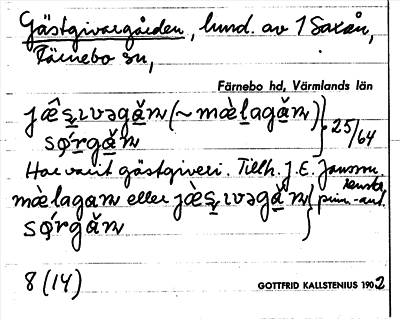 Gästgivaregården, lund. av 1 Saxån,
Färnebo sn,
Färnebo hd, Värmlands län
jæ̂s̲ɩvəgǎn (~ mæ̀l̲agǎn) } 25/64
sǿrgǎn
Har varit gästgiveri. Tillh. J. E. Jansson.
mæ̀lagan eller jæ̀s̲ɩvəgǎn }
sǿrgǎn
8 (14)
GOTTFRID KALLSTENIUS 1902